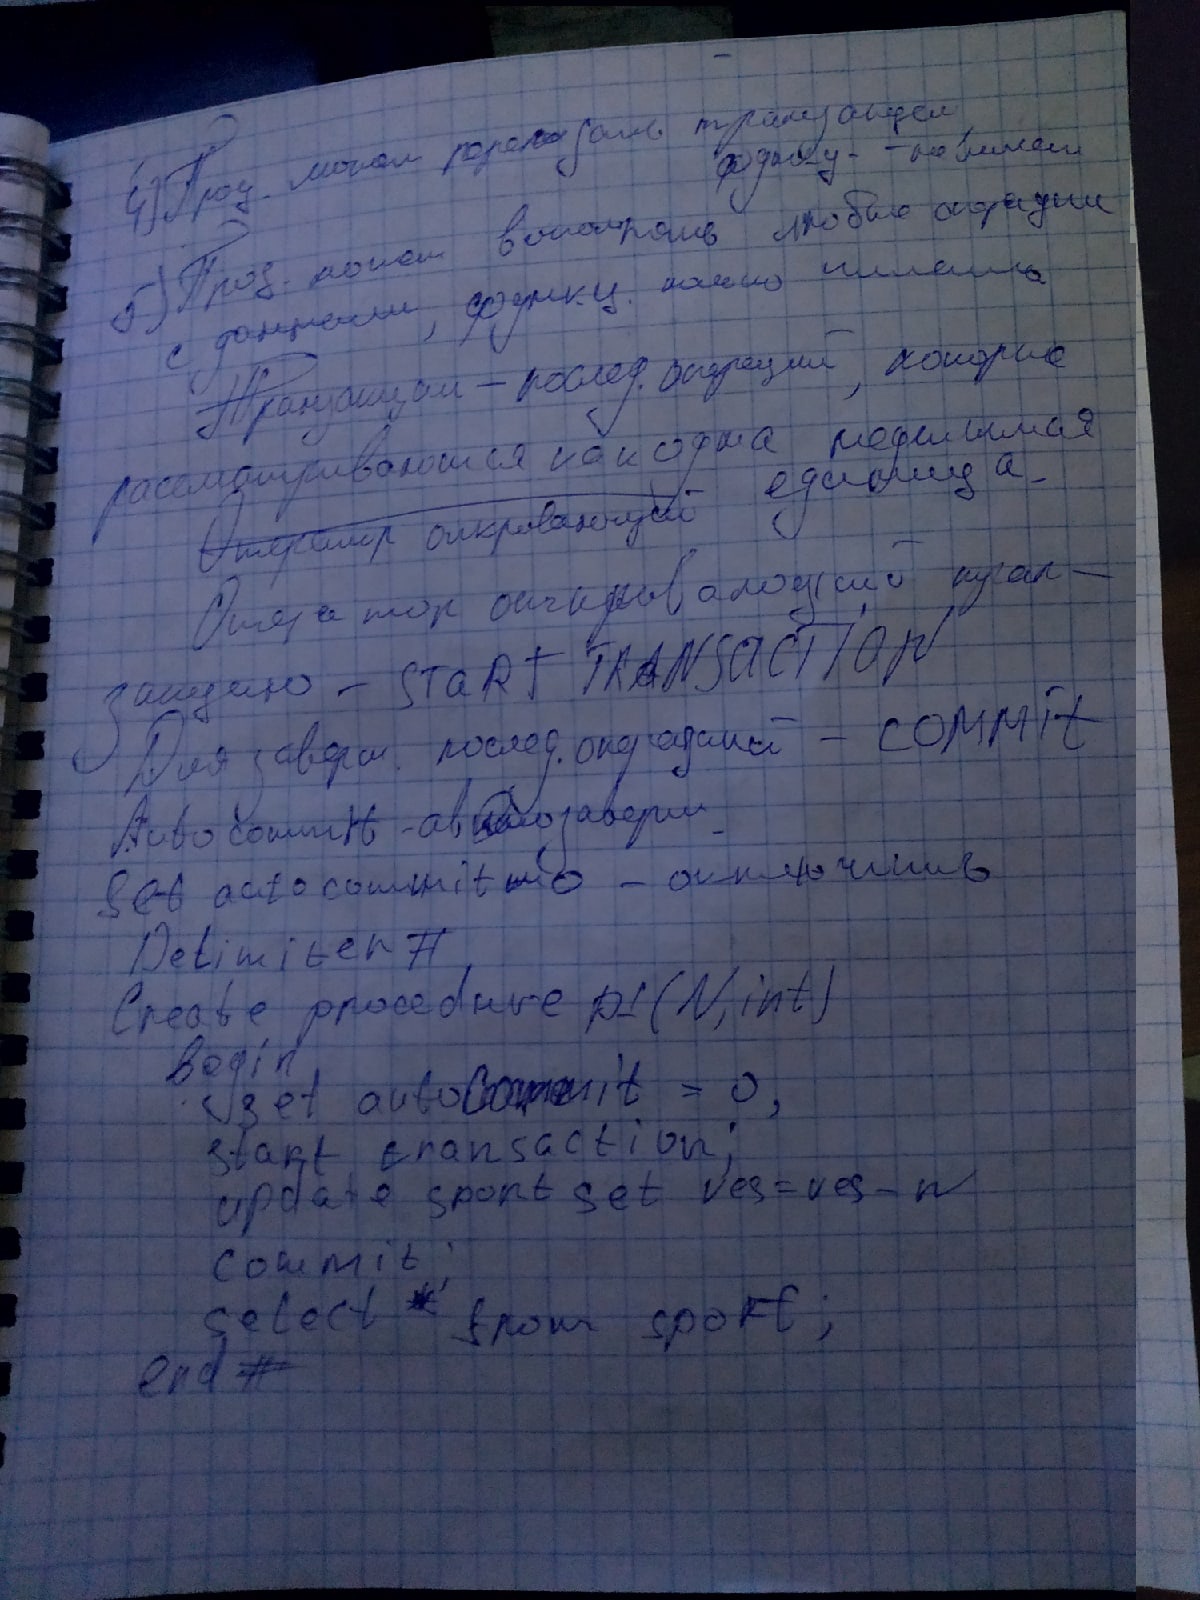 4) Проц. может транзакции
функц. - не может
5) Проц. может любые операции
с данными, функц. только
Транзакции - послед. операций, которые
рассматриваются как одна неделимая
единица.
Оператор открывающий
Оператор открывающий тран-
закцию - START TRANSACTION
Для заверш. послед. операций - COMMIT
Autocommit - автозаверш.
Set autocommit = 0 - отключить
Delimiter #
Create procedure p1(N, int)
begin
set autocommit = 0;
start transaction;
update sport set ves = ves - n
commit;
select * from sport;
end #